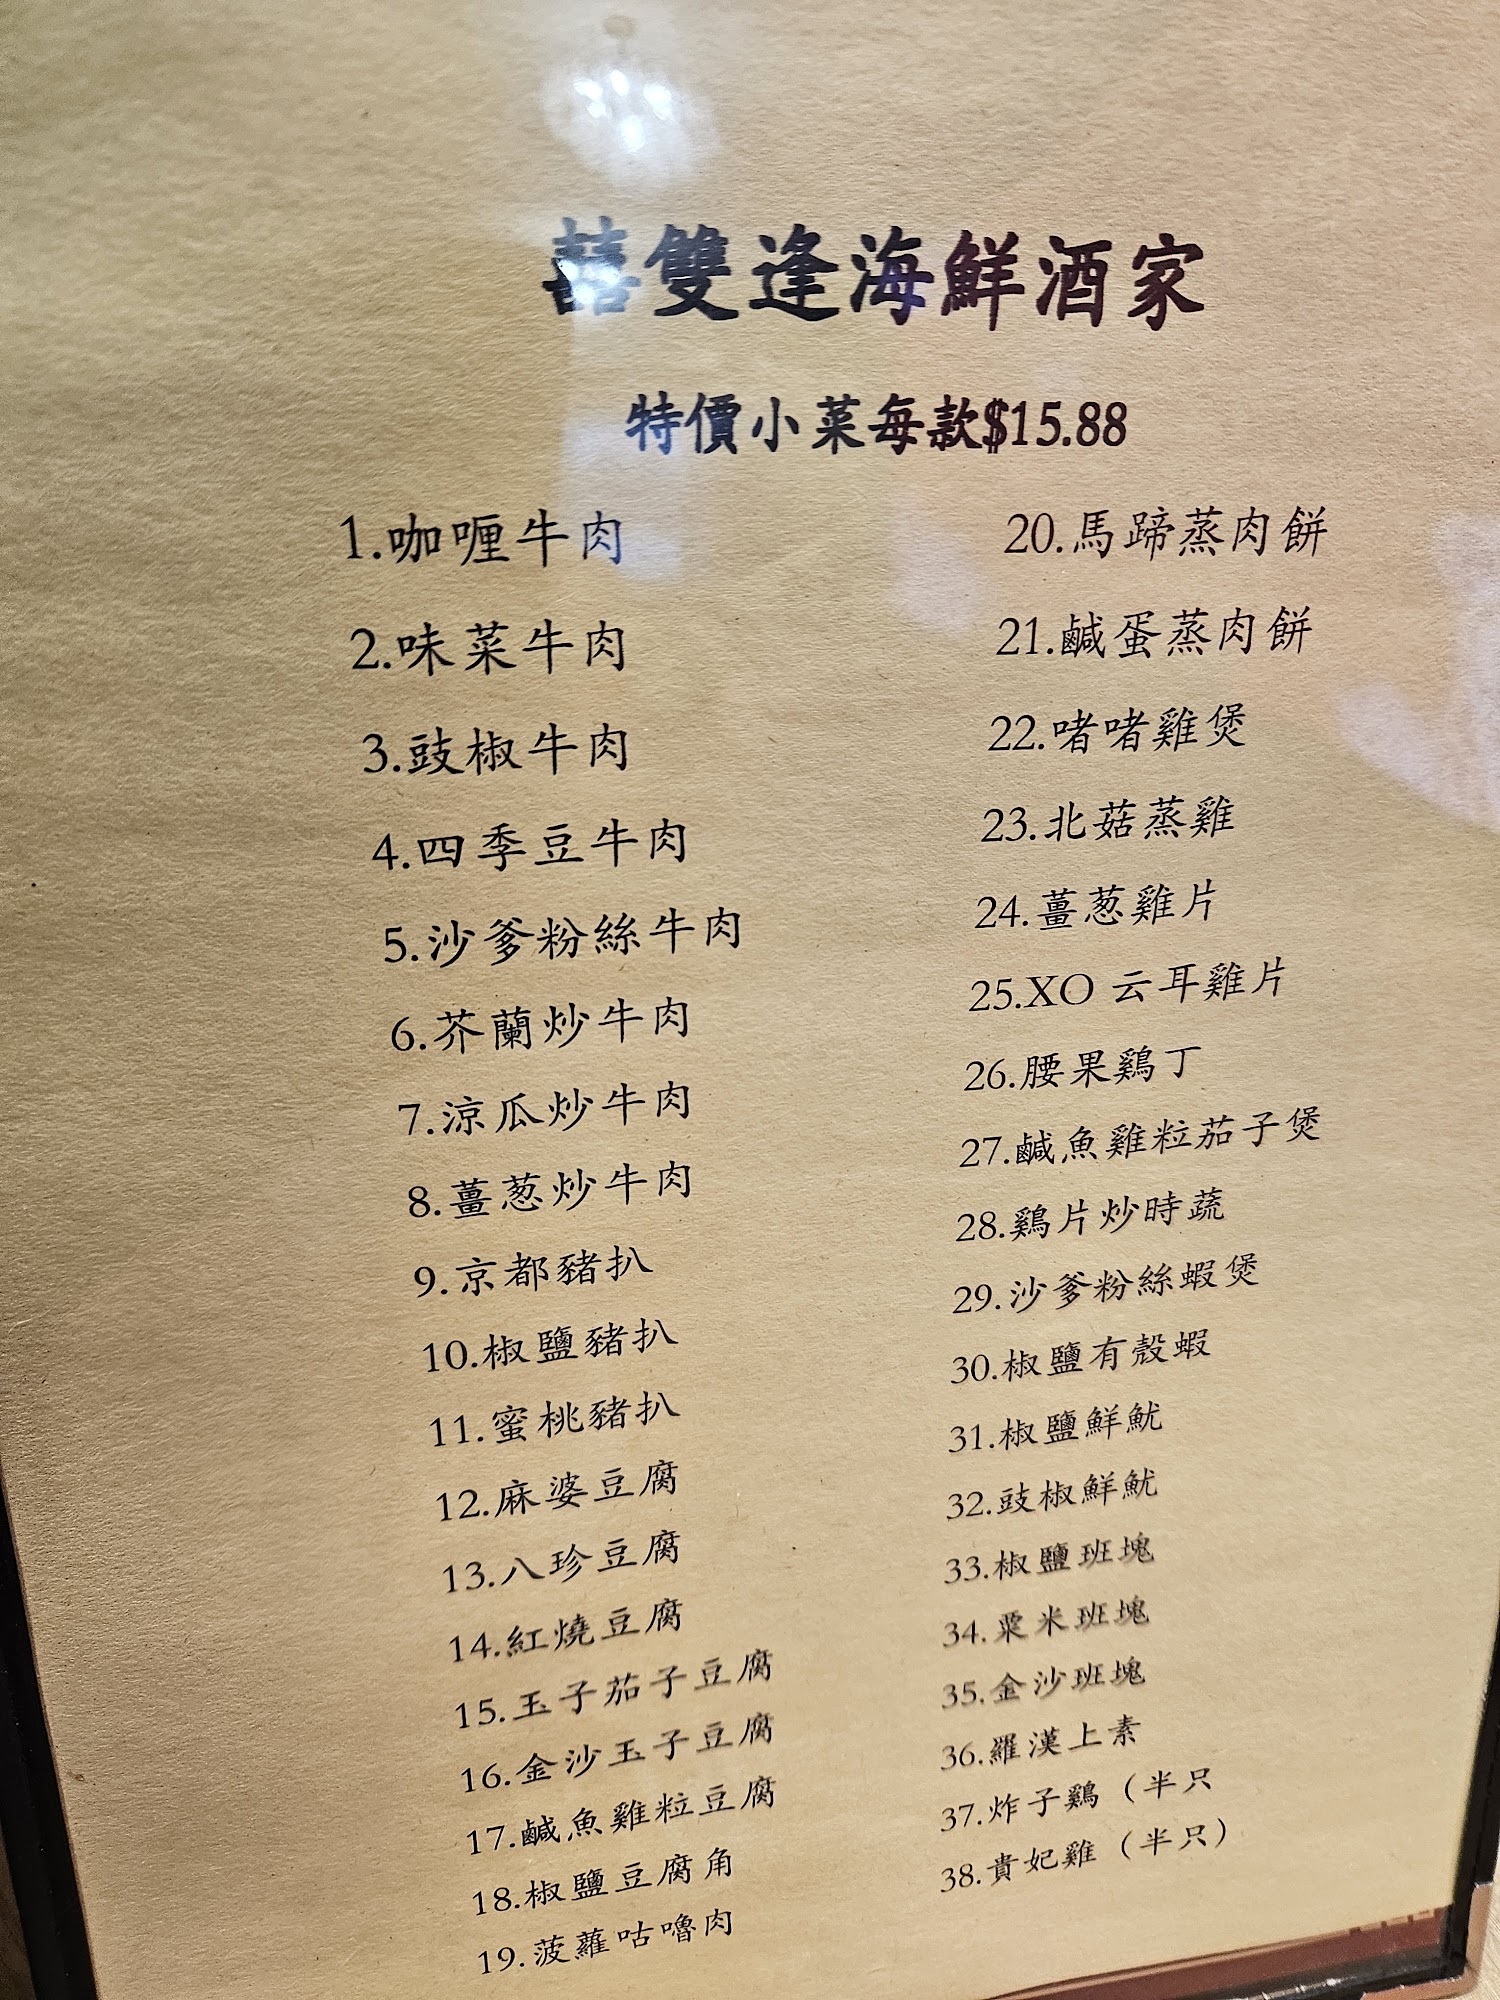 囍雙逢海鮮酒家
特價小菜每款$15.88
1.咖喱牛肉
2.味菜牛肉
3.豉椒牛肉
4.四季豆牛肉
5.沙爹粉絲牛肉
6.芥蘭炒牛肉
7.涼瓜炒牛肉
8.薑葱炒牛肉
9.京都豬扒
10.椒鹽豬扒
11.蜜桃豬扒
12.麻婆豆腐
13.八珍豆腐
14.紅燒豆腐
15.玉子茄子豆腐
16.金沙玉子豆腐
17.鹹魚雞粒豆腐
18.椒鹽豆腐角
19.菠蘿咕嚕肉
20.馬蹄蒸肉餅
21.鹹蛋蒸肉餅
22.啫啫雞煲
23.北菇蒸雞
24.薑葱雞片
25.XO 云耳雞片
26.腰果鷄丁
27.鹹魚雞粒茄子煲
28.鷄片炒時蔬
29.沙爹粉絲蝦煲
30.椒鹽有殼蝦
31.椒鹽鮮魷
32.豉椒鮮魷
33.椒鹽班塊
34.粟米班塊
35.金沙班塊
36.羅漢上素
37.炸子鷄（半只
38.貴妃雞（半只）